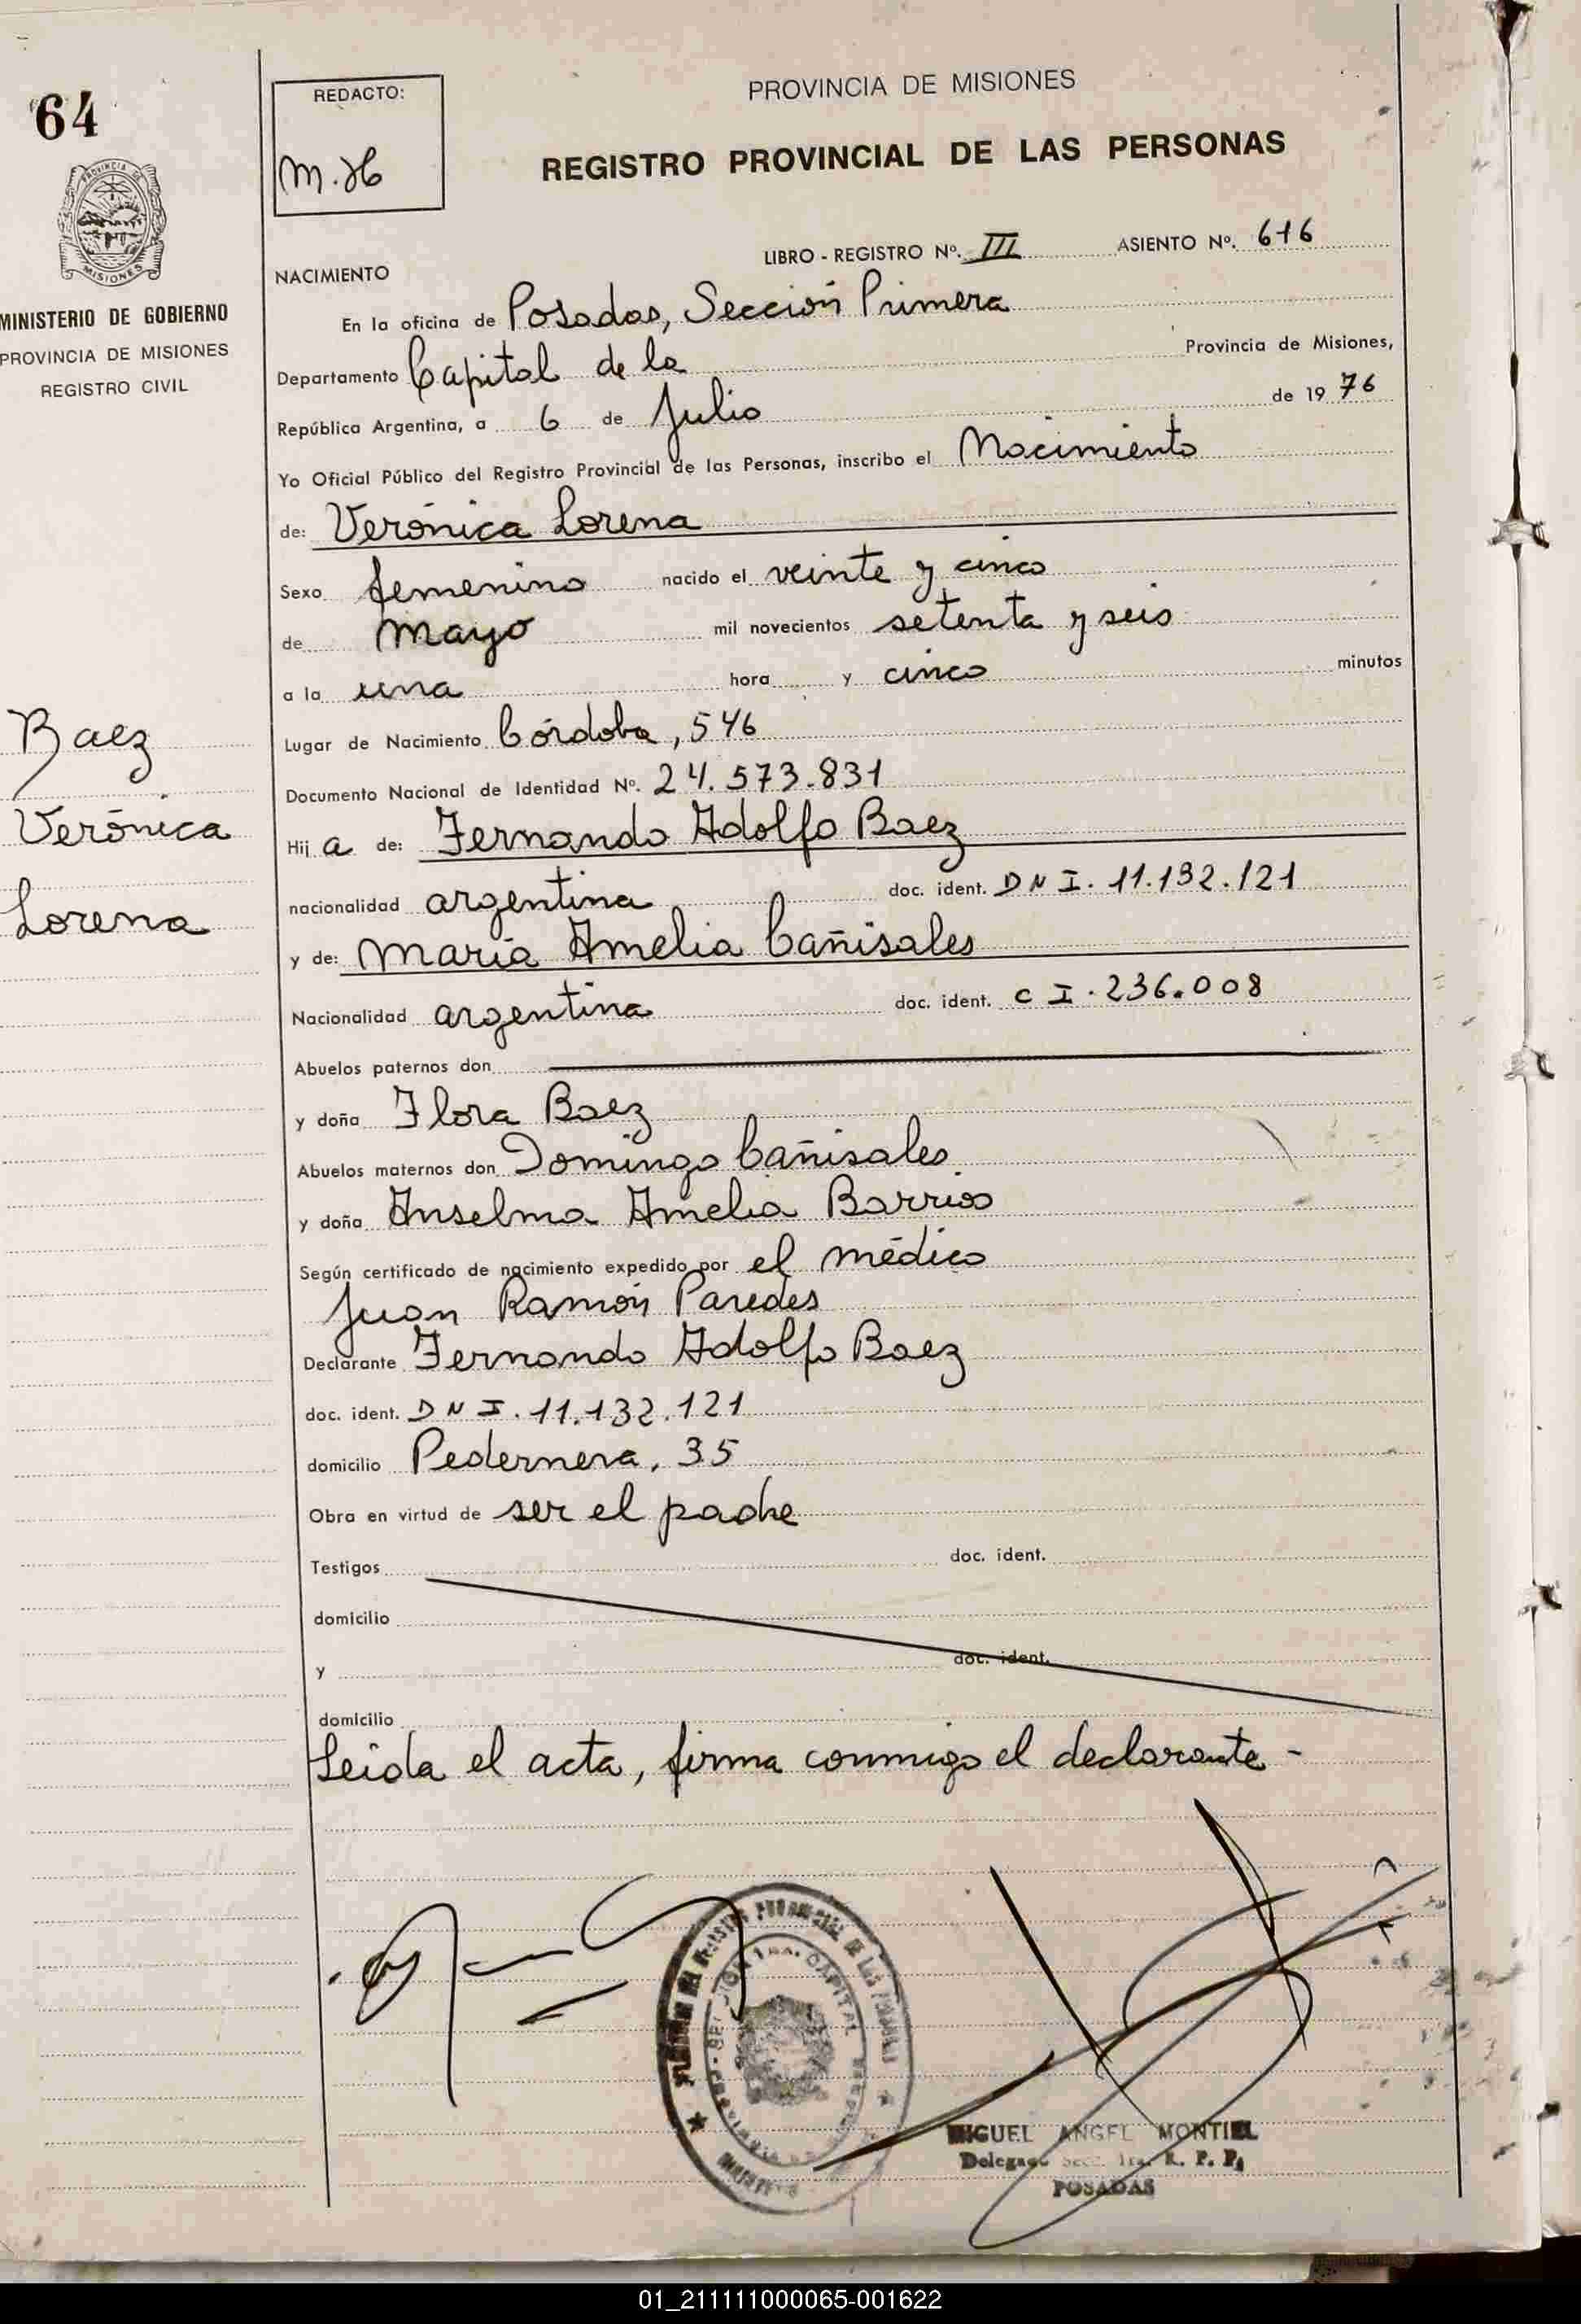 64
REDACTO:
M.H
PROVINCIA DE MISIONES
REGISTRO PROVINCIAL DE LAS PERSONAS
PROVINCIA DE
MISIONES
MINISTERIO DE GOBIERNO
PROVINCIA DE MISIONES
REGISTRO CIVIL
LIBRO - REGISTRO Nº. III ASIENTO Nº. 616
NACIMIENTO
En la oficina de Posadas, Sección Primera
Departamento Capital de la Provincia de Misiones,
República Argentina, a 6 de Julio de 1976
Yo Oficial Público del Registro Provincial de las Personas, inscribo el Nacimiento
de: Verónica Lorena
Sexo femenino nacido el veinte y cinco
de mayo mil novecientos setenta y seis
a la una hora y cinco minutos
Baez
Verónica
Lorena
Lugar de Nacimiento Córdoba, 546
Documento Nacional de Identidad Nº. 24.573.831
Hij a de: Fernando Adolfo Baez
nacionalidad argentina doc. ident. DNI. 11.132.121
y de: María Amelia Cañisales
Nacionalidad argentina doc. ident. CI. 236.008
Abuelos paternos don
y doña Flora Baez
Abuelos maternos don Domingo Cañisales
y doña Anselma Amelia Barrios
Según certificado de nacimiento expedido por el médico
Juan Ramón Paredes
Declarante Fernando Adolfo Baez
doc. ident. DNI. 11.132.121
domicilio Pedernera, 35
Obra en virtud de ser el padre
Testigos doc. ident.
domicilio
y doc. ident.
domicilio
Leida el acta, firma conmigo el declarante -
MIGUEL ANGEL MONTIEL
Delegado Secc. 1ra. R. P. P.
POSADAS
01_211111000065-001622